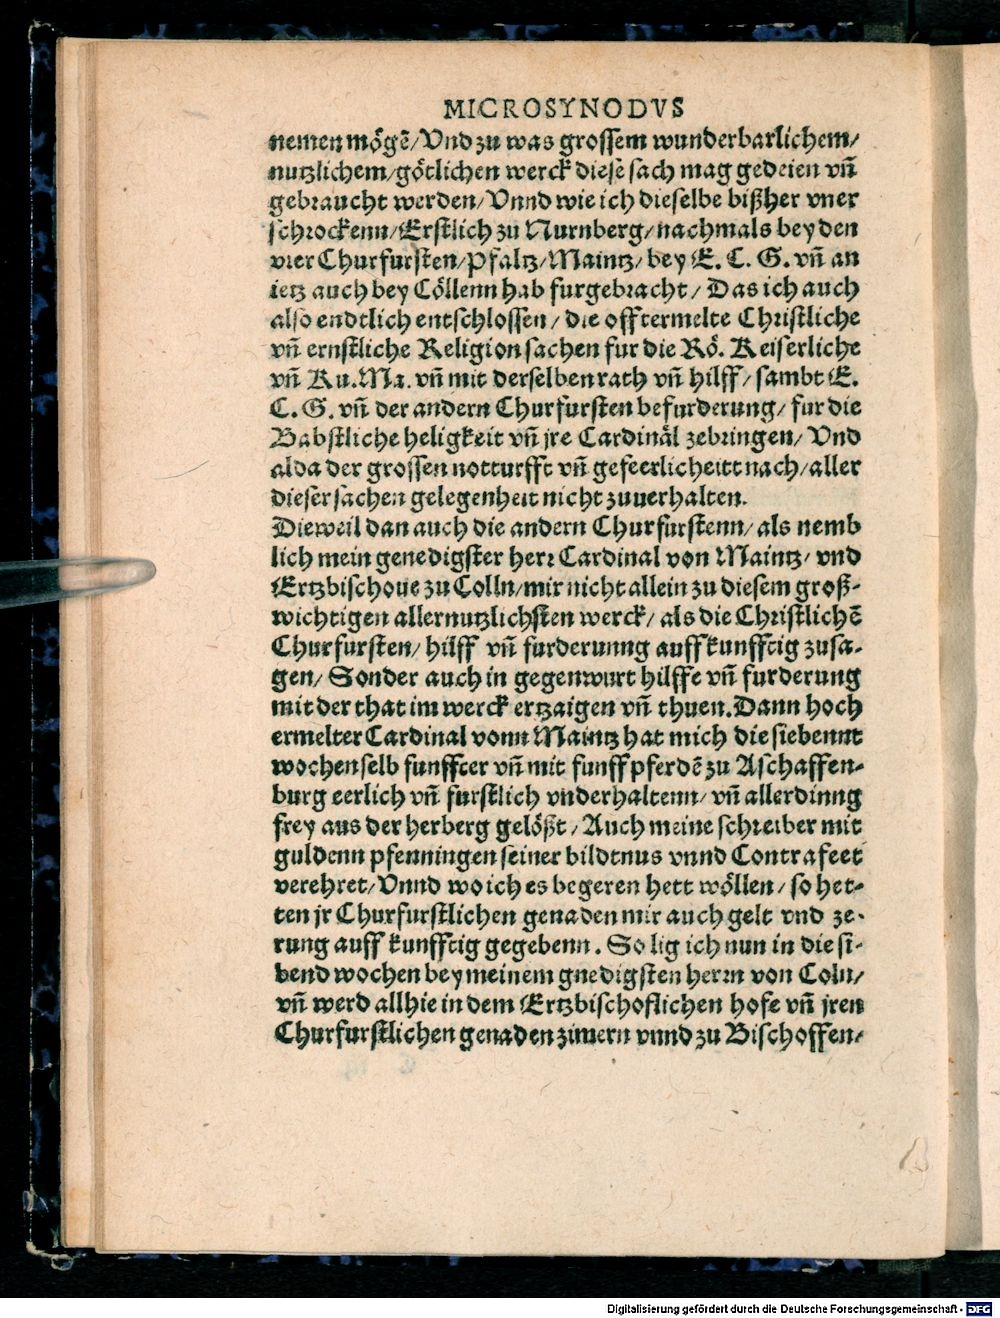 MICROSYNODVS
nemen mögē/Vnd zu was grossem wunderbarlichem/
nutzlichem/götlichen werck diese sach mag gedeien vñ
gebraucht werden/Vnnd wie ich dieselbe bißher vner
schrockenn/Erstlich zu Nurnberg/nachmals bey den
vier Churfursten/Pfaltz/Maintz/bey E. C. G. vñ an
ietz auch bey Cöllenn hab furgebracht/ Das ich auch
also endtlich entschlossen/die offtermelte Christliche
vñ ernstliche Religion sachen fur die Rö. Keiserliche
vñ Ku.Ma. vñ mit derselben rath vñ hilff/sambt E.
C. G. vñ der andern Churfursten befurderung/fur die
Babstliche heligkeit vñ jre Cardinäl zebringen/ Vnd
alda der grossen notturfft vñ gefeerlicheitt nach/aller
dieser sachen gelegenheit nicht zuuerhalten.
Dieweil dan auch die andern Churfurstenn/als nemb
lich mein genedigster herr Cardinal von Maintz/ vnd
Ertzbischoue zu Colln/mir nicht allein zu diesem groß-
wichtigen allernutzlichsten werck/ als die Christlichē
Churfursten/ hilff vñ furderunng auff kunfftig zusa-
gen/ Sonder auch in gegenwurt hilffe vñ furderung
mit der that im werck ertzaigen vñ thuen.Dann hoch
ermelter Cardinal vonn Maintz hat mich die siebennt
wochen selb funffter vñ mit funff pferdē zu Aschaffen-
burg eerlich vñ furstlich vnderhaltenn/ vñ allerdinng
frey aus der herberg gelößt/ Auch meine schreiber mit
guldenn pfenningen seiner bildtnus vnnd Contrafeet
verehret/Vnnd wo ich es begeren hett wöllen/so het-
ten jr Churfurstlichen genaden mir auch gelt vnd ze-
rung auff kunfftig gegebenn. So lig ich nun in die si-
bend wochen bey meinem gnedigsten herrn von Coln/
vñ werd allhie in dem Ertzbischoflichen hofe vñ jren
Churfurstlichen genaden zimern vnnd zu Bischoffen-
Digitalisierung gefördert durch die Deutsche Forschungsgemeinschaft - DFG